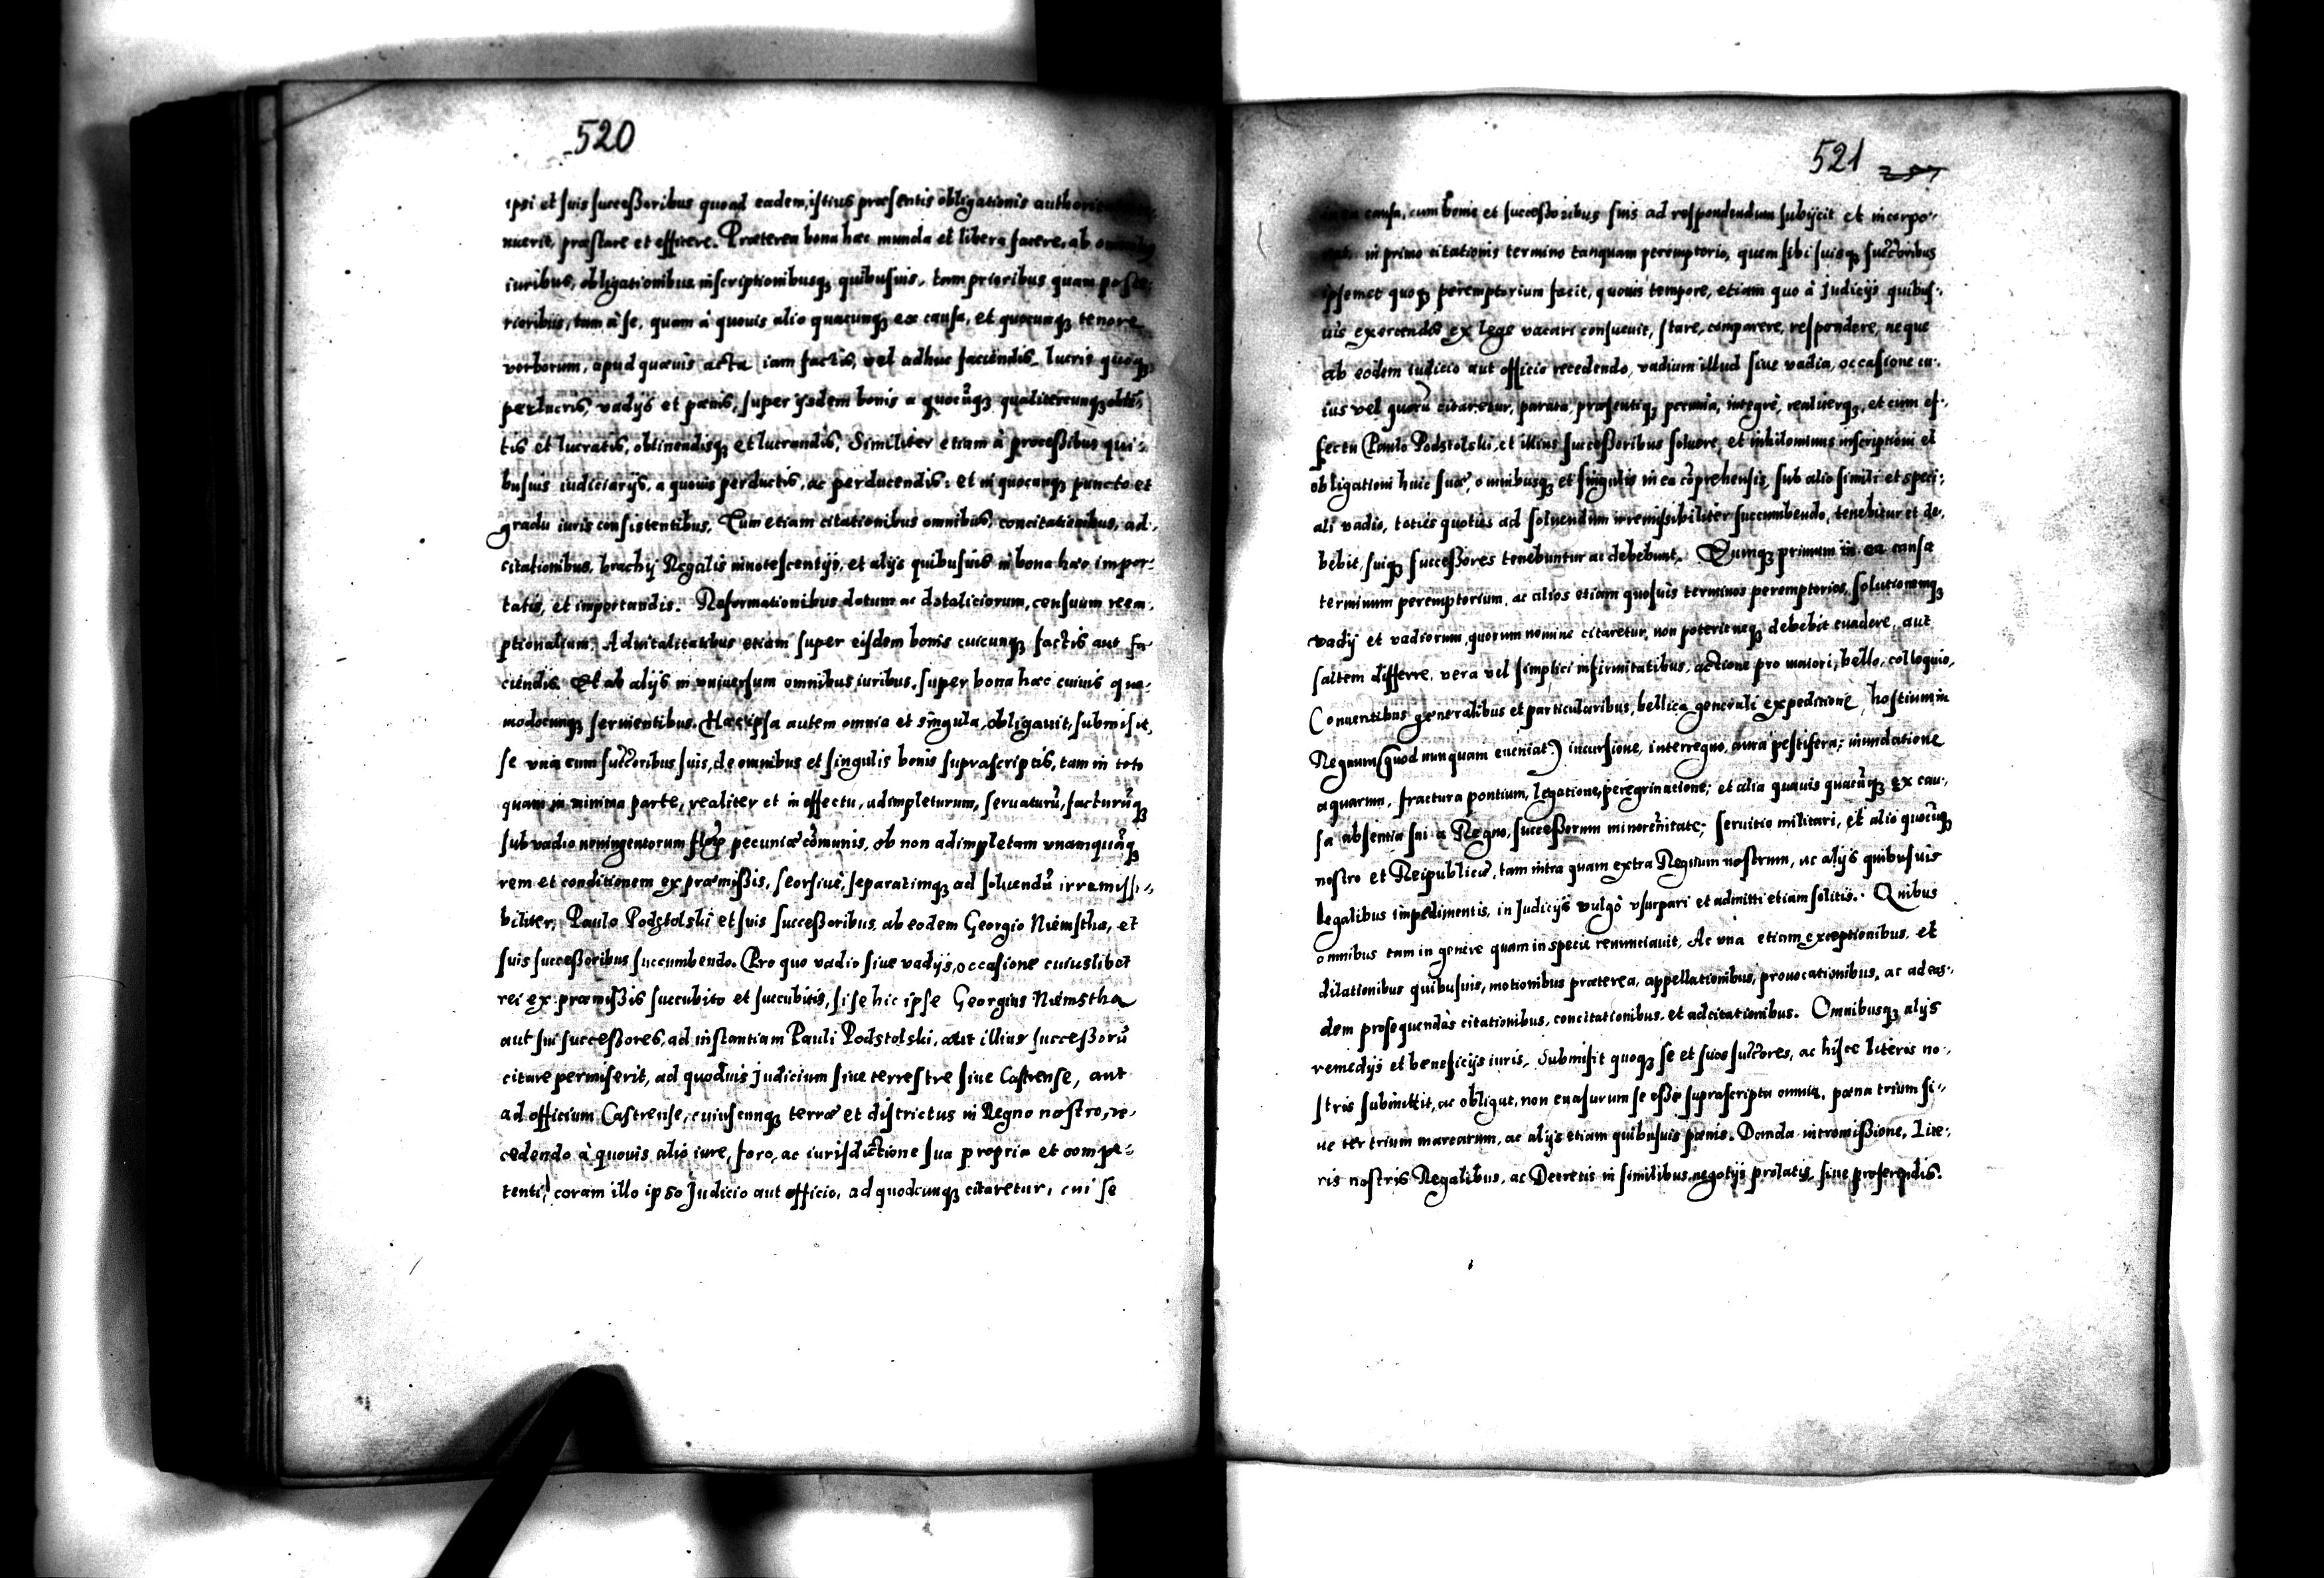 520
ipsi et suis successoribus quoad eadem, istius præsentis obligationis
nuerit, præstare et efficere. Præterea bona hæc munda et libera facere, ab
iuribus, obligationibus inscriptionibusq, quibusuis, tam prioribus quam poste,
rioribus, tam à se, quam à quouis alio quacunq, ex causa, et quocunq, tenore
verborum, apud quæuis acta iam factis, vel adhuc faciendis. lucris quoq,
perlucris, vadijs et pænis, super ijsdem bonis a quocũq, qualitercunq, obtē,
tis et lucratis, obtinendisq, et lucrandis, Similiter etiam à processibus qui,
busuis iudiciarijs, a quouis perductis, ac perducendis: et in quocunq, puncto et
gradu iuris consistentibus. Tum etiam citationibus omnibus, concitationibus, ad,
citationibus, brachij Regalis innotescentijs, et alijs quibusuis in bona hæc impor,
tatis, et importandis. Reformationibus dotum ac dotaliciorum, censuum reem,
ptionalium. Aduitalitatibus etiam super eisdem bonis cuicunq, factis aut fa
ciendis. Et ab alijs in vniuersum omnibus iuribus, super bona hæc cuiuis quo,
modocunq, seruientibus. Hæc ipsa autem omnia et singula, obligauit, submisit,
se vna cum succoribus suis, de omnibus et singulis bonis suprascriptis, tam in toto
quam in minima parte, realiter et in effectu, adimpleturum, seruaturũ, facturũq,
sub vadio noningentorum flor pecuniæ cõmunis, ob non adimpletam vnamquãq,
rem et conditionem ex præmissis, seorsiue, separatimq, ad soluendũ irremissi,
biliter, Paulo Podstolski et suis successoribus, ab eodem Georgio Niemstha, et
suis successoribus succumbendo. Pro quo vadio siue vadijs, occasione cuiuslibet
rei ex præmissis succubito et succubitis, si se hic ipse Georgius Niemstha
aut sui successores, ad instantiam Pauli Podstolski, aut illius successorũ
citare permiserit, ad quoduis Judicium siue terrestre siue Castrense, aut
ad officium Castrense, cuiuscunq, terræ et districtus in Regno nostro, re,
cedendo à quouis alio iure, foro, ac iurisdictione sua propria et compe,
tenti, coram illo ipso Judicio aut officio, ad quodcunq, citaretur, cui se
521
causa, cum bonis et successoribus suis ad respondendum subijcit et incorpo,
in primo citationis termino tanquam peremptorio, quem sibi suisq, succoribus
ipsemet quoq, peremptorium facit, quouis tempore, etiam quo à Judicijs quibus,
uis exercendis ex lege vacari consueuit, stare, comparere, respondere, neque
ab eodem iudicio aut officio recedendo, vadium illud siue vadia, occasione cu,
ius vel quorũ citaretur, parata, præsentiq, pecunia, integrè, realiterq, et cum ef,
fectu Paulo Podstolski, et illius successoribus soluere, et nihilominus inscriptioni et
obligationi huic suæ, omnibusq, et singulis in ea cõprehensis, sub alio simili et speci,
ali vadio, toties quoties ad soluendum irremissibiliter succumbendo, tenebitur et de,
bebit, suiq, successores tenebuntur ac debebunt. Eumq, primum in ea causa
terminum peremptorium, ac alios etiam quosuis terminos peremptorios, solutionemq,
vadij et vadiorum, quorum nomine citaretur, non poterit neq, debebit euadere, aut
saltem differre, vera vel simplici infirmitatibus, actione pro maiori, bello, colloquio,
Conuentibus generalibus et particularibus, bellica generali expeditione, hostium in
Regnum (quod nunquam eueniat) incursione, interregno, aura pestifera; inundatione
aquarum, fractura pontium, legatione, peregrinatione; et alia quauis quacũq, ex cau,
sa absentia sui a Regno, successorum minorennitate; seruitio militari, et alio quocũq,
nostro et Reipublicæ, tam intra quam extra Regnum nostrum, ac alijs quibusuis
legalibus impedimentis, in Judicijs vulgò vsurpari et admitti etiam solitis. Quibus
omnibus tam in genere quam in specie renunciauit. Ac vna etiam exceptionibus, et
dilationibus quibusuis, motionibus præterea, appellationibus, prouocationibus, ac ad eas,
dem prosequendas citationibus, concitationibus, et adcitationibus. Omnibusq, alijs
remedijs et beneficijs iuris. Submisit quoq, se et suos succores, ac hisce literis no,
stris submittit, ac obligat, non euasurum se esse suprascripta omnia, pæna trium si,
ue ter trium marcarum, ac alijs etiam quibusuis pænis. Danda intromissione, Lite,
ris nostris Regalibus, ac Decretis in similibus negotijs prolatis, siue proferendis.